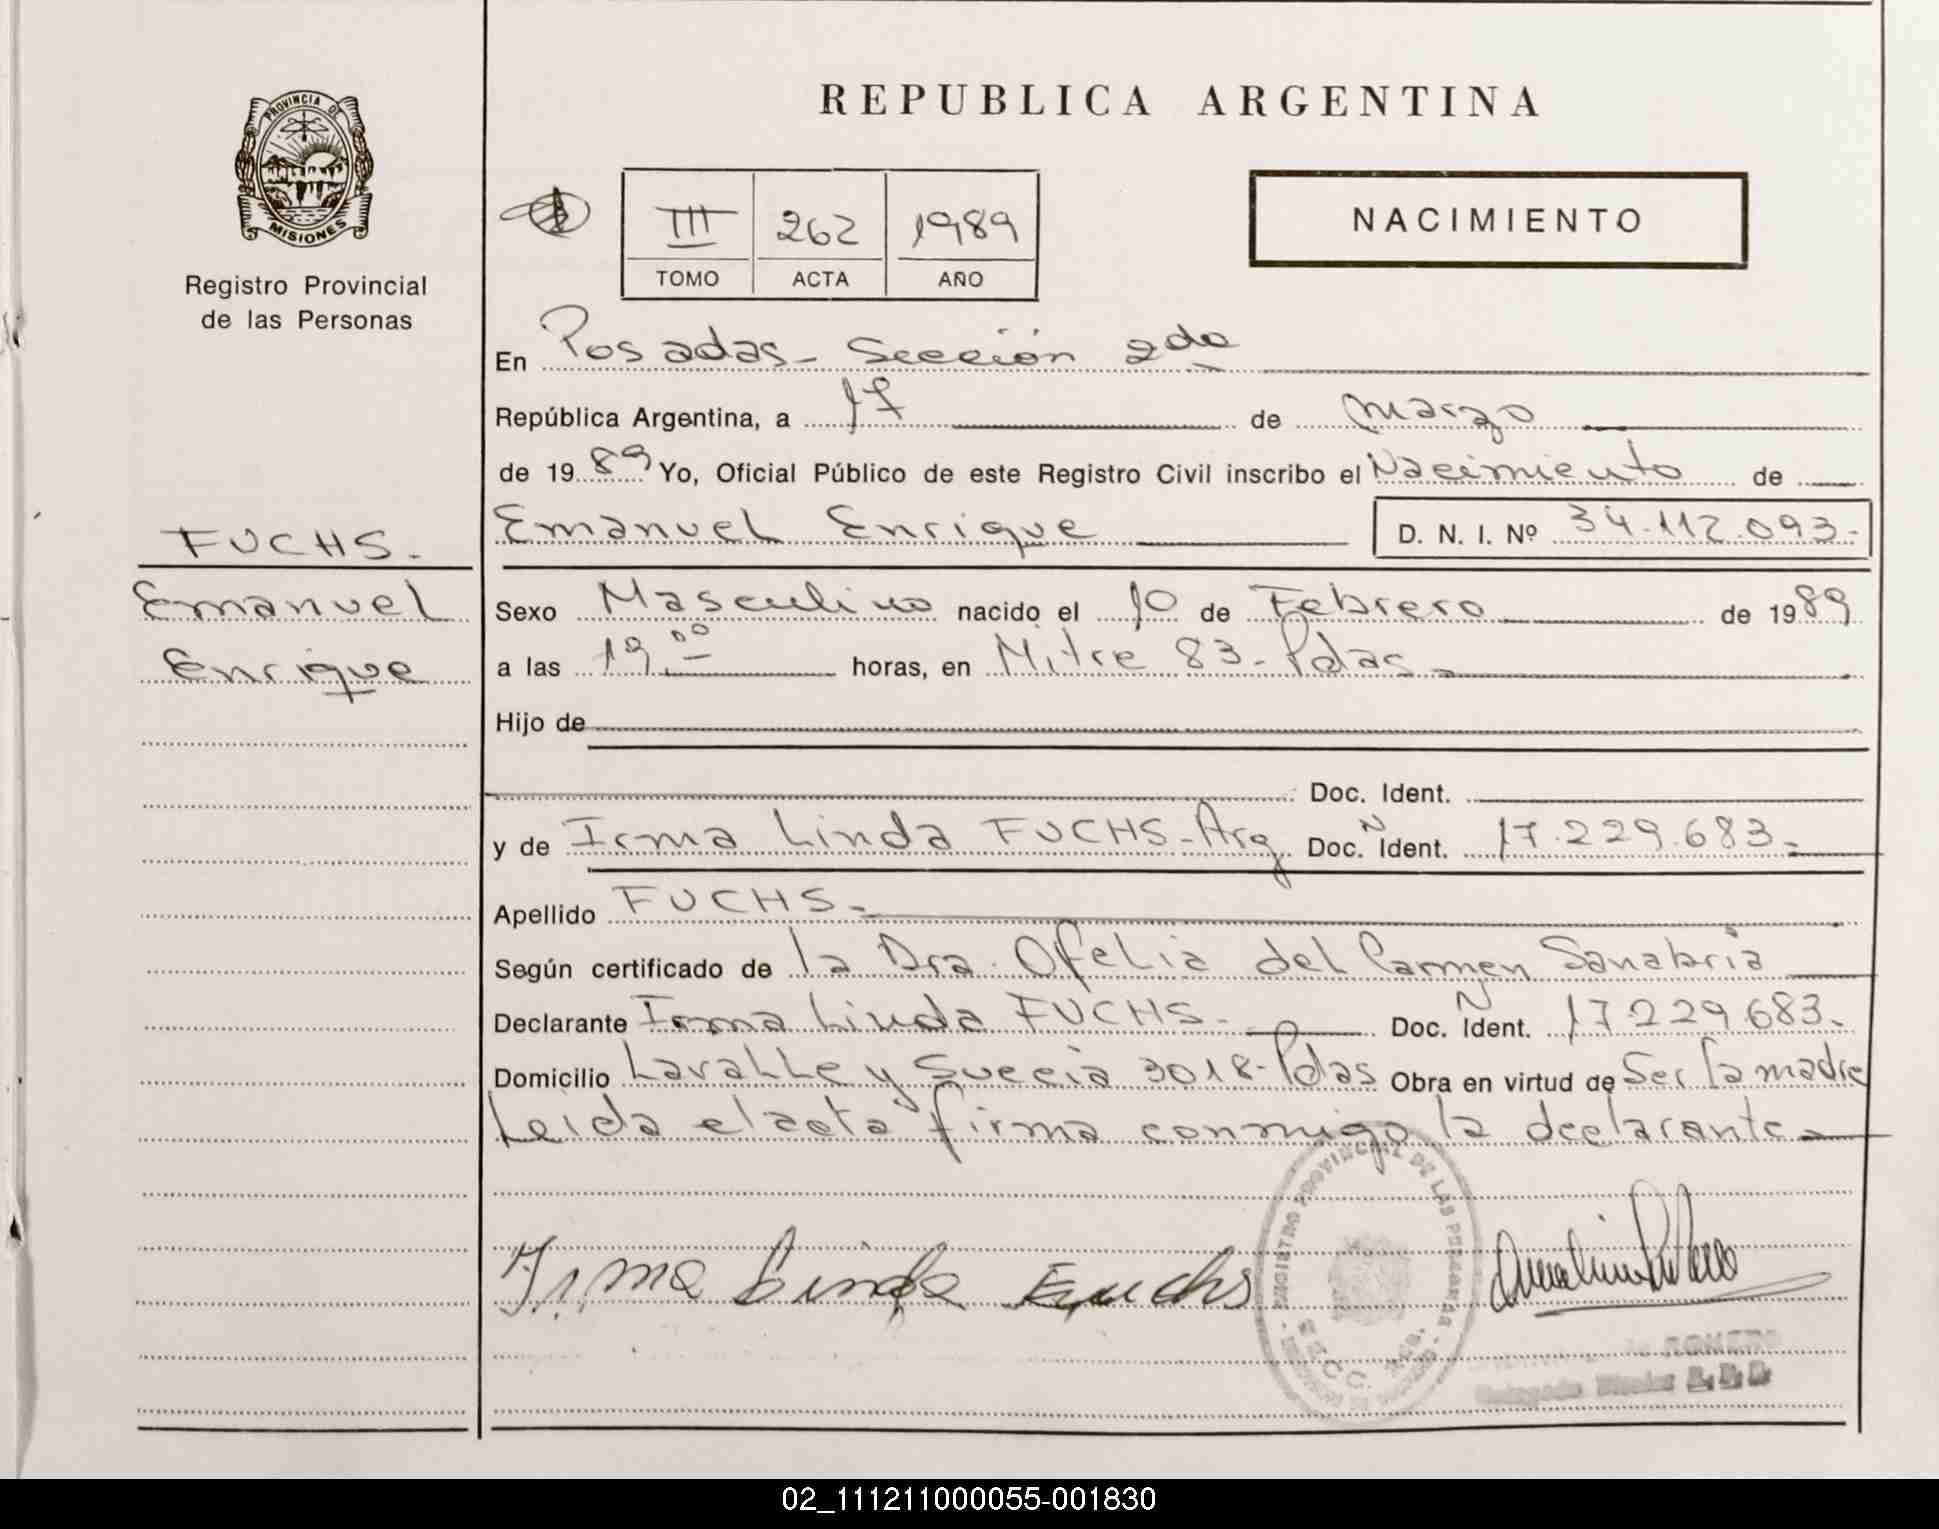 PROVINCIA DE
MISIONES
Registro Provincial
de las Personas
REPUBLICA ARGENTINA
III 262 1989
TOMO ACTA AÑO
NACIMIENTO
En Posadas - Sección 2da
República Argentina, a 17 de marzo
de 1989 Yo, Oficial Público de este Registro Civil inscribo el Nacimiento de
FUCHS.
Emanuel Enrique D. N. I. Nº 34.112.093.-
Emanuel
Sexo Masculino nacido el 10 de Febrero de 1989
Enrique
a las 19.00 horas, en Mitre 83 - Pdas.
Hijo de
Doc. Ident.
y de Irma Linda FUCHS - Arg. Doc. N Ident. 17.229.683.-
Apellido FUCHS.-
Según certificado de la Dra. Ofelia del Carmen Sanabria
Declarante Irma Linda FUCHS.- Doc. N Ident. 17.229.683.
Domicilio Lavalle y Suecia 3018 - Pdas Obra en virtud de Ser la madre
Leida el acta firma conmigo la declarante.-
Irma Linda Fuchs
REGISTRO PROVINCIAL DE LAS PERSONAS
ROMERO
02_111211000055-001830